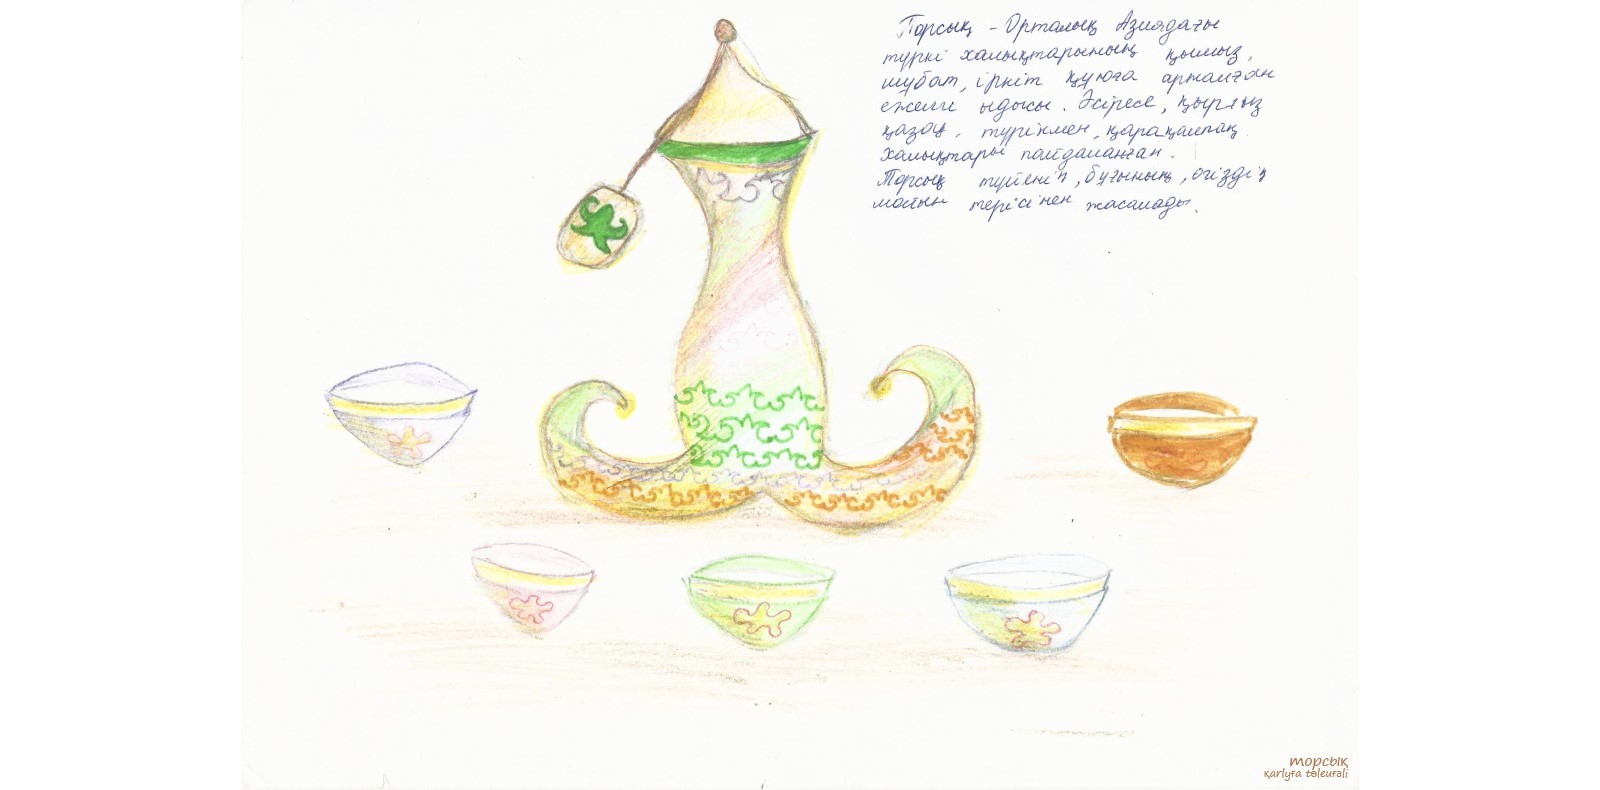 Торсық – Орталық Азиядағы
түркі халықтарының қымыз,
шұбат, іркіт құюға арналған
ежелгі ыдысы. Әсіресе, қырғыз
қазақ, түрікмен, қарақалпақ
халықтары пайдаланған.
Торсық түйенің, бұғының, өгіздің
мойын терісінен жасалады.
торсық
qarlyǵa tóleuǵali